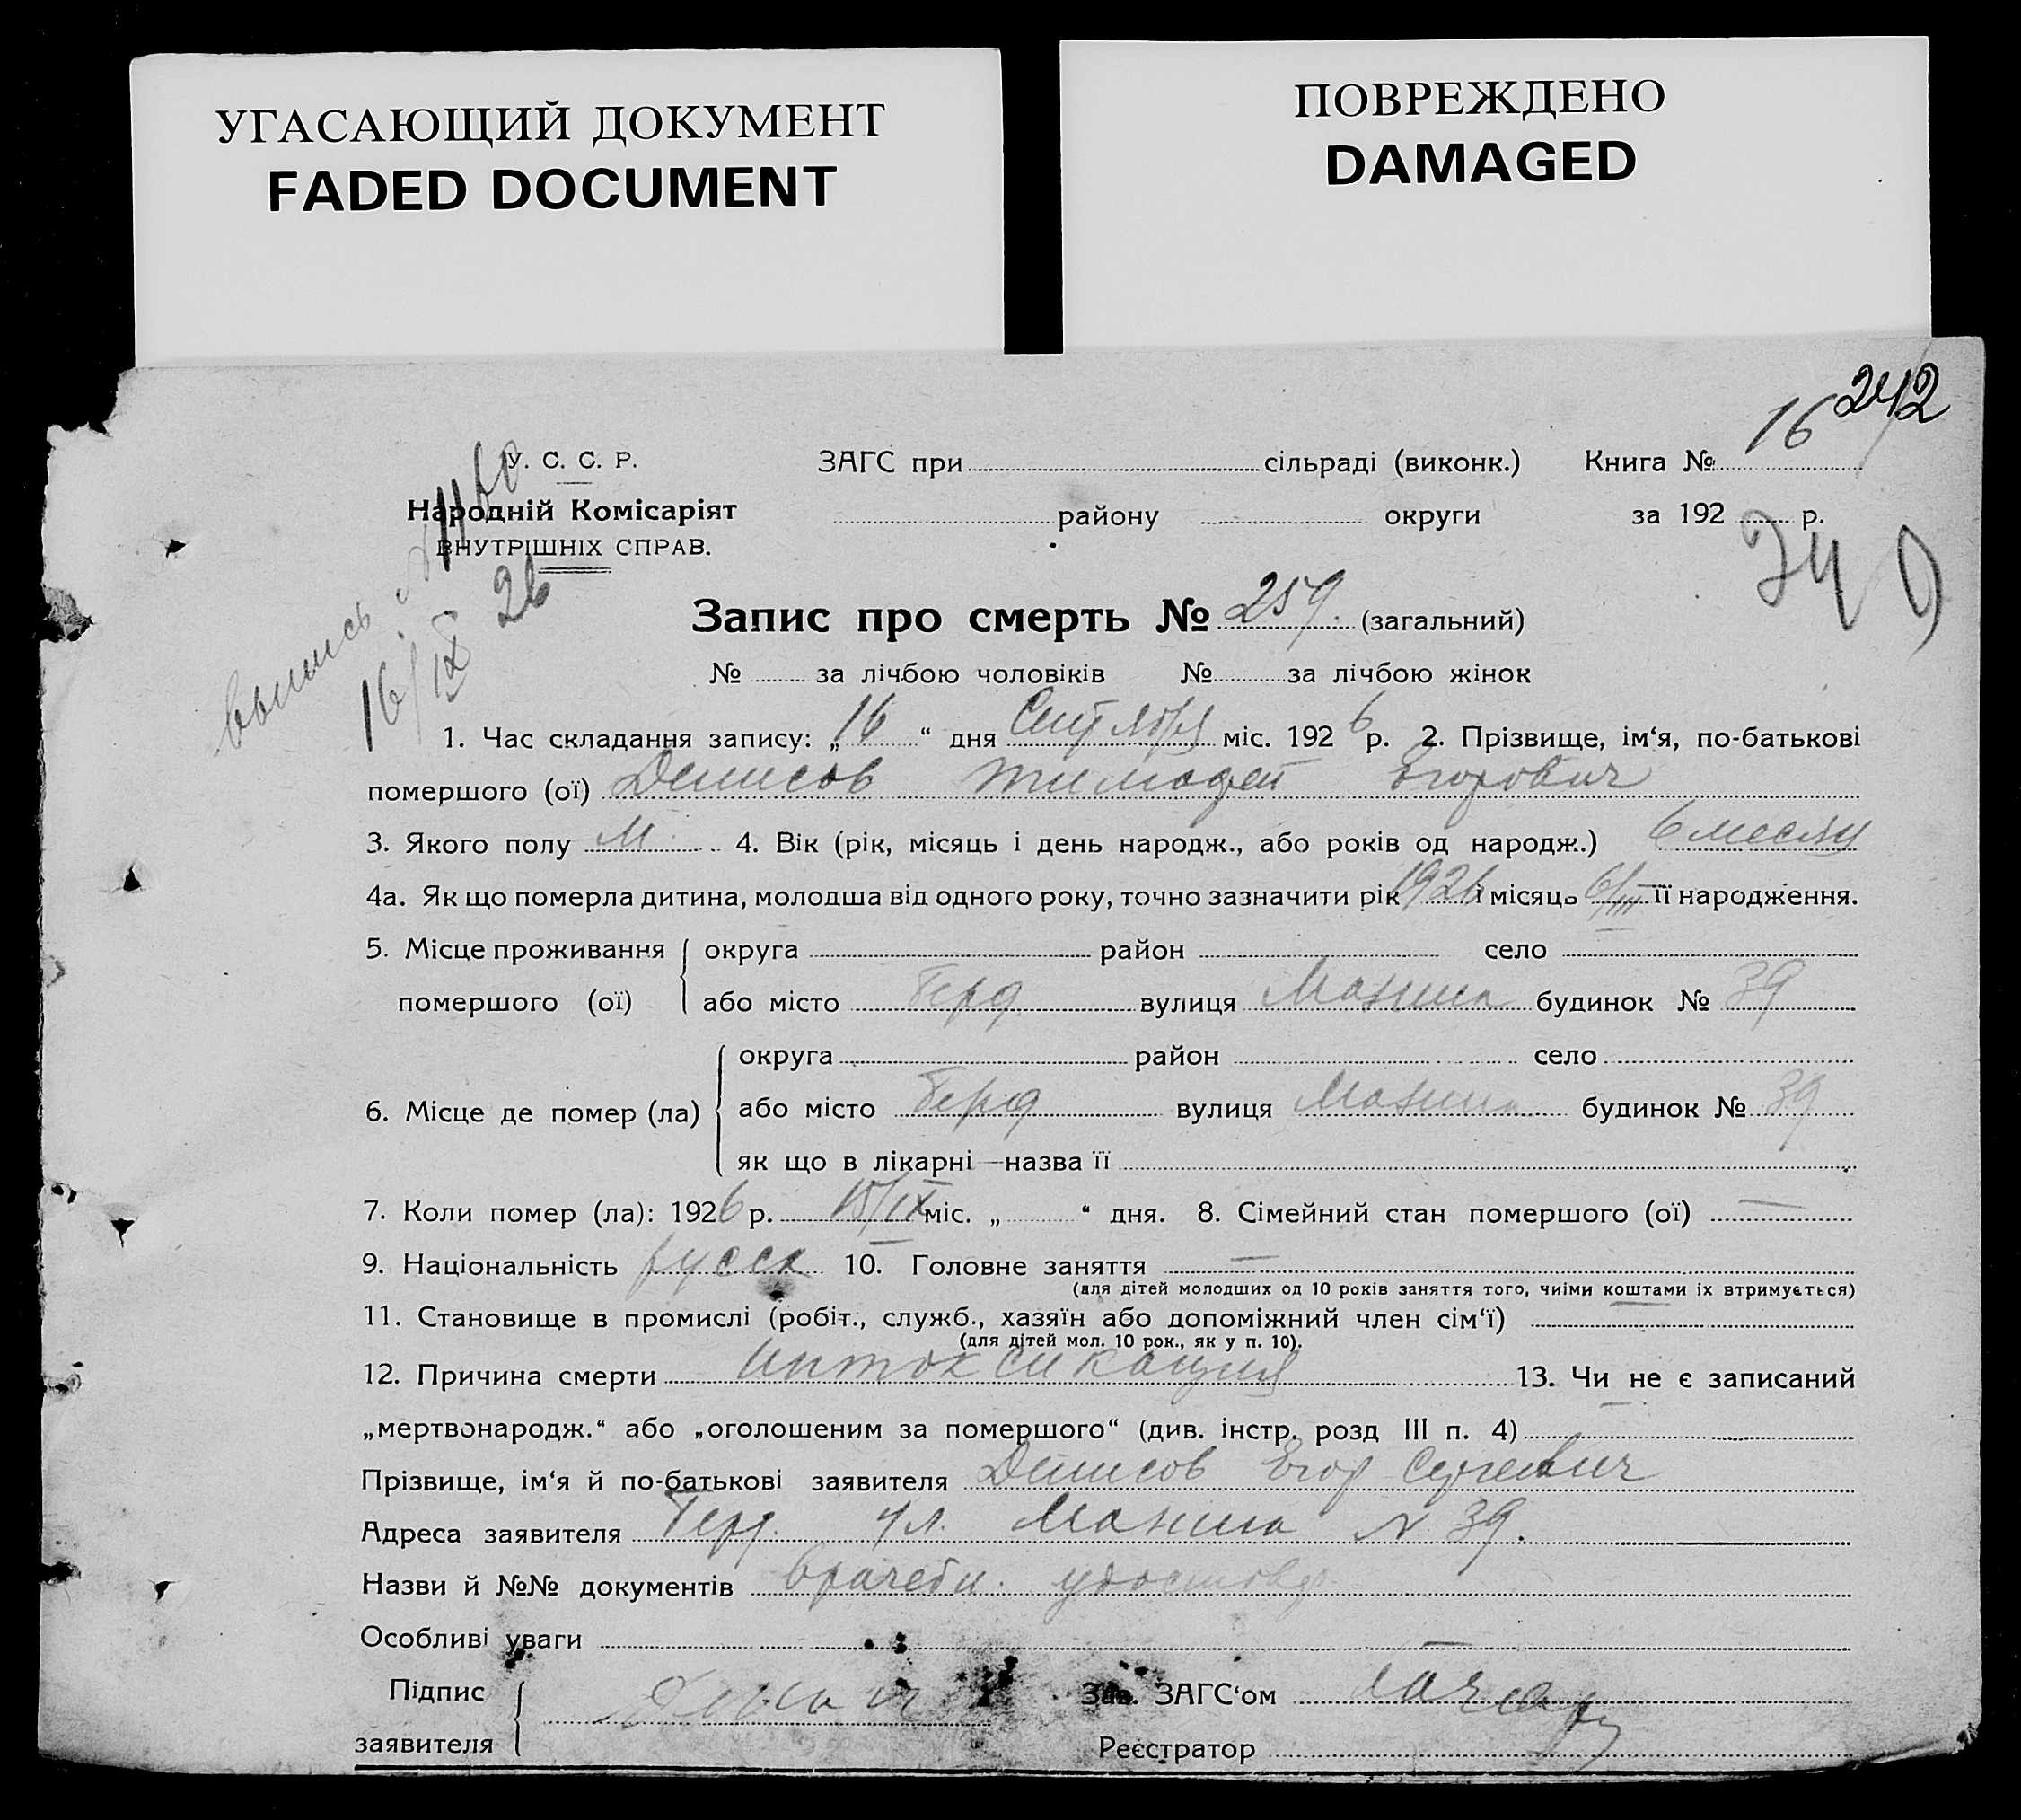 УГАСАЮЩИЙ ДОКУМЕНТ
FADED DOCUMENT
ПОВРЕЖДЕНО
DAMAGED
242
У. С. С. Р.
Народній Комісаріят
ВНУТРІШНІХ СПРАВ.
ЗАГС при сільраді (виконк.) Книга № 16
району округи за 192 р.
выпись
16/IX 26
Запис про смерть № 259. (загальний)
№ за лічбою чоловіків № за лічбою жінок
1. Час складання запису: „16“ дня Сентября міс. 1926 р. 2. Прізвище, ім‘я, по-батькові
помершого (ої) Денисов Тимофей Егорович
3. Якого полу М 4. Вік (рік, місяць і день народж., або років од народж.) 6 месяц
4а. Як що померла дитина, молодша від одного року, точно зазначити рік 1926 і місяць 6/III її народження.
5. Місце проживання округа район село
помершого (ої) або місто Берд вулиця вулиця будинок № 39
6. Місце де помер (ла) округа район село
або місто Берд вулиця будинок № 39
як що в лікарні—назва її
7. Коли помер (ла): 1926 р. 15/IX міс. „ “ дня. 8. Сімейний стан помершого (ої) —
9. Національність русск 10. Головне заняття —
(для дітей молодших од 10 років заняття того, чиїми коштами їх втримується)
11. Становище в промислі (робіт., служб., хазяїн або допоміжний член сім‘ї) —
(для дітей мол. 10 рок., як у п. 10).
12. Причина смерти Интоксикация 13. Чи не є записаний
„мертвонародж.“ або „оголошеним за помершого“ (див. інстр. розд III п. 4) —
Прізвище, ім‘я й по-батькові заявителя Денисов Егор Сергеевич
Адреса заявителя Берд. ул. N 39.
Назви й №№ документів врачебн. удостовер
Особливі уваги —
Підпис
заявителя
Зав. ЗАГС‘ом
Реєстратор